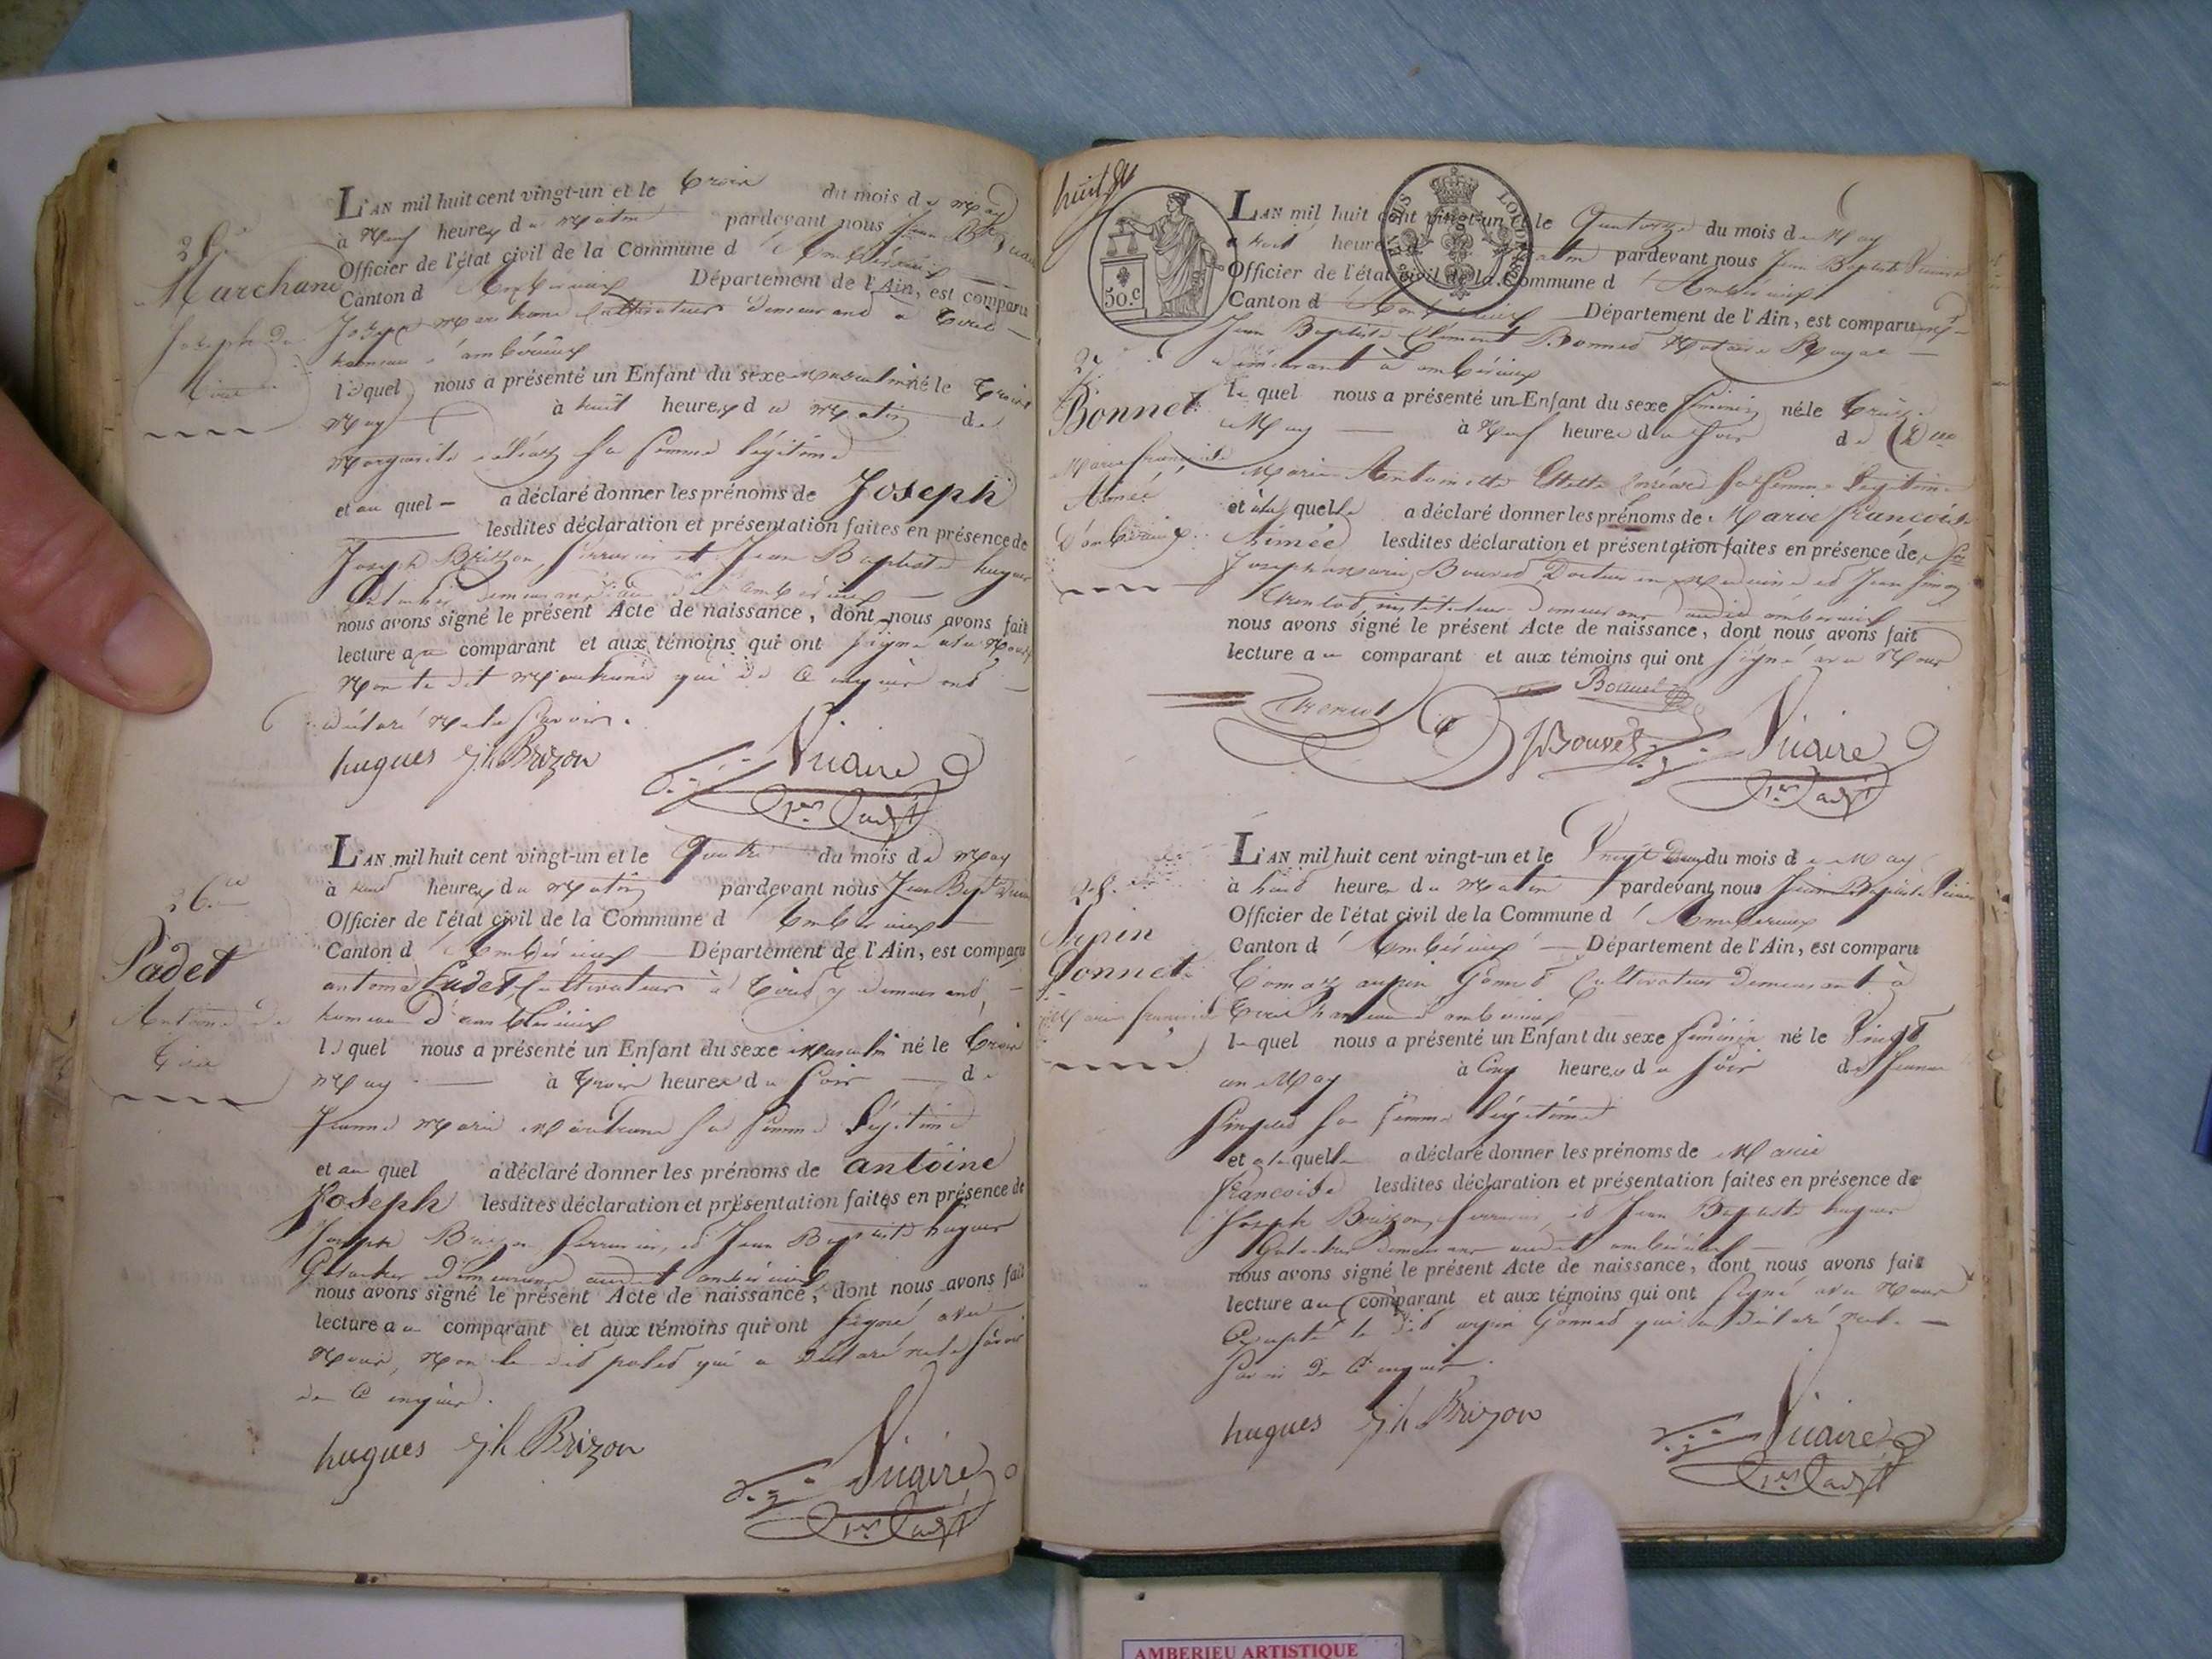 25.e
Marchand
Joseph de
Tiret
L'AN mil huit cent vingt-un et le trois du mois de may
à neuf heures du matin pardevant nous Jean Bte Vicaire
Officier de l'état civil de la Commune d'Ambérieux
Canton d'Ambérieux Département de l'Ain, est comparu
Joseph Marchand Cultivateur demeurant à Tiret
hameau d'ambérieux
lequel nous a présenté un Enfant du sexe masculin né le trois
May à huit heures du matin de
Marguerite sa femme légitime
et au quel a déclaré donner les prénoms de Joseph
lesdites déclaration et présentation faites en présence de
Joseph Brizon, serrurier et Jean Baptiste hugues
demeurant audit ambérieux
nous avons signé le présent Acte de naissance, dont nous avons fait
lecture au comparant et aux témoins qui ont signé avec Nous
Non le dit Marchand qui de ce enquis ont
déclaré Ne le savoir.
hugues Jh Brizon Vicaire
1er adjt
26.e
Padet
Antoine de
Tiret
L'AN mil huit cent vingt-un et le quatre du mois de may
à heures du matin pardevant nous Jean Bapte Vicaire
Officier de l'état civil de la Commune d'Ambérieux
Canton d'Ambérieux Département de l'Ain, est comparu
antoine Padet, Cultivateur à Tiret y demeurant,
hameau d'ambérieux
lequel nous a présenté un Enfant du sexe Masculin né le trois
May à trois heures du soir de
Jeanne Marie Marchand sa femme légitime
et au quel a déclaré donner les prénoms de antoine
Joseph lesdites déclaration et présentation faites en présence de
Joseph Brizon serrurier, et Jean Baptiste hugues
demeurant audit ambérieux
nous avons signé le présent Acte de naissance, dont nous avons fait
lecture au comparant et aux témoins qui ont signé avec
Nous, Non le dit padet qui a déclaré ne le savoir
de ce enquis.
hugues Jh Brizon Vicaire
1er adjt
huit
50.c
27.
Bonnet
Marie françoise
Aimée
d'ambérieux
L'AN mil huit cent vingt-un et le quatorze du mois de May
à huit heures du matin pardevant nous Jean Baptiste Vicaire
Officier de l'état civil de la Commune d'Ambérieux
Canton d'Ambérieux Département de l'Ain, est comparu
Jean Baptiste Clément Bonnet Notaire Royal
demeurant à ambérieux
le quel nous a présenté un Enfant du sexe féminin né le treize
May à Neuf heures du soir de Dme
Marie Antoinette sa femme légitime
et à la quelle a déclaré donner les prénoms de Marie françoise
Aimée lesdites déclaration et présentation faites en présence de
Joseph Marie Bouvet, Docteur en Médecine et Jean
instituteur demeurant audit ambérieux
nous avons signé le présent Acte de naissance, dont nous avons fait
lecture au comparant et aux témoins qui ont signé avec Nous
Bonnet
Bouvet Vicaire
1er adjt
28.
Arpin
Gonnet
Marie françoise
L'AN mil huit cent vingt-un et le Vingt Deux du mois de May
à huit heures du matin pardevant nous Jean Baptiste Vicaire
Officier de l'état civil de la Commune d'Ambérieux
Canton d'Ambérieux Département de l'Ain, est comparu
arpin Gonnet Cultivateur demeurant à
Tiret hameau d'ambérieux
le quel nous a présenté un Enfant du sexe féminin né le Vingt
un May à Cinq heures du soir de Jeanne
sa femme légitime
et a la quelle a déclaré donner les prénoms de Marie
françoise lesdites déclaration et présentation faites en présence de
Joseph Brizon, serrurier, et Jean Baptiste hugues
demeurant audit ambérieux
nous avons signé le présent Acte de naissance, dont nous avons fait
lecture au comparant et aux témoins qui ont signé avec Nous
Excepté le dit arpin Gonnet qui a déclaré ne le
savoir de ce enquis.
hugues Jh Brizon Vicaire
1er adjt
AMBERIEU ARTISTIQUE